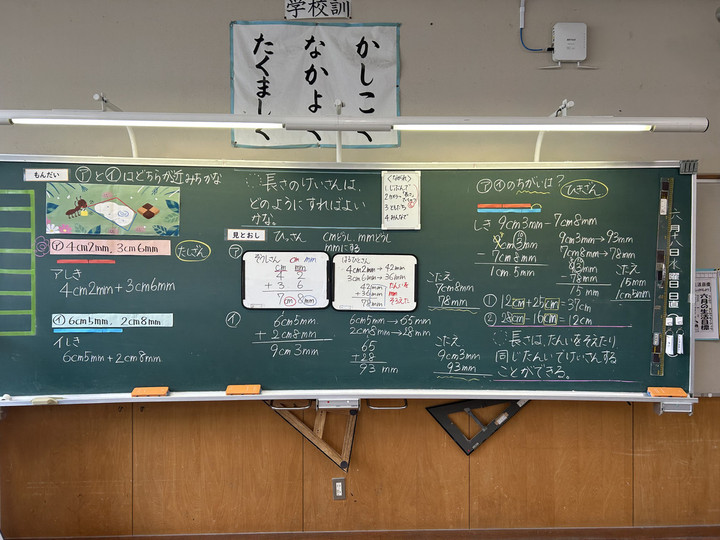 学校訓
かしこく
なかよく
たくましく
もんだい
㋐と㋑はどちらが近みちかな
㋐4cm2mm、3cm6mm
たしざん
アしき
4cm2mm+3cm6mm
㋑6cm5mm、2cm8mm
イしき
6cm5mm+2cm8mm
長さのけいさんは、
どのようにすればよい
かな。
見とおし
ひっさん
cmどうし、mmどうし
mmにする
㋐
cm mm
cm mm
4 2
+ 3 6
7 8
cm mm
4cm2mm→42mm
3cm6mm→36mm
42mm
+36mm
78mm
こたえ
7cm8mm
78mm
イ
6cm5mm
+ 2cm8mm
9cm3mm
6cm5mm→65mm
2cm8mm→28mm
65
+28
93 mm
こたえ
9cm3mm
93mm
㋐㋑のちがいは?
ひきざん
しき 9cm3mm-7cm8mm
9cm3mm
-7cm8mm
1cm 5mm
9cm3mm→93mm
7cm8mm→78mm
93mm
-78mm
15 mm
こたえ
15mm
1cm5mm
① 12cm+25cm=37cm
② 28cm-16cm=12cm
長さは、たんいをそろえたり、
同じたんいでけいさんする
ことができる。
六月十八日水曜日
六月の生活目標